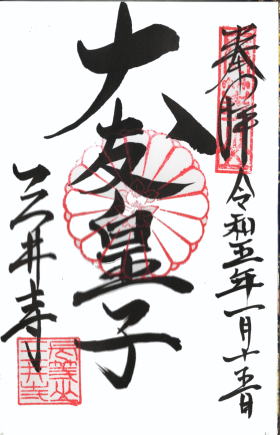 奉拝
令和五年一月十五日
大友皇子
三井寺